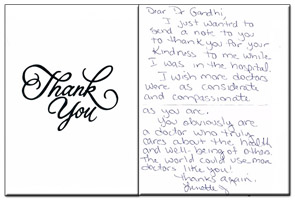 Thank
You
Dear Dr Gandhi
I just wanted to
send a note to you
to thank you for your
kindness to me while
I was in the hospital.
I wish more doctors
were as considerate
and compassionate
as you are.
You obviously are
a doctor who truly
cares about the health
and well-being of others.
The world could use more
doctors like you!
Thanks again.